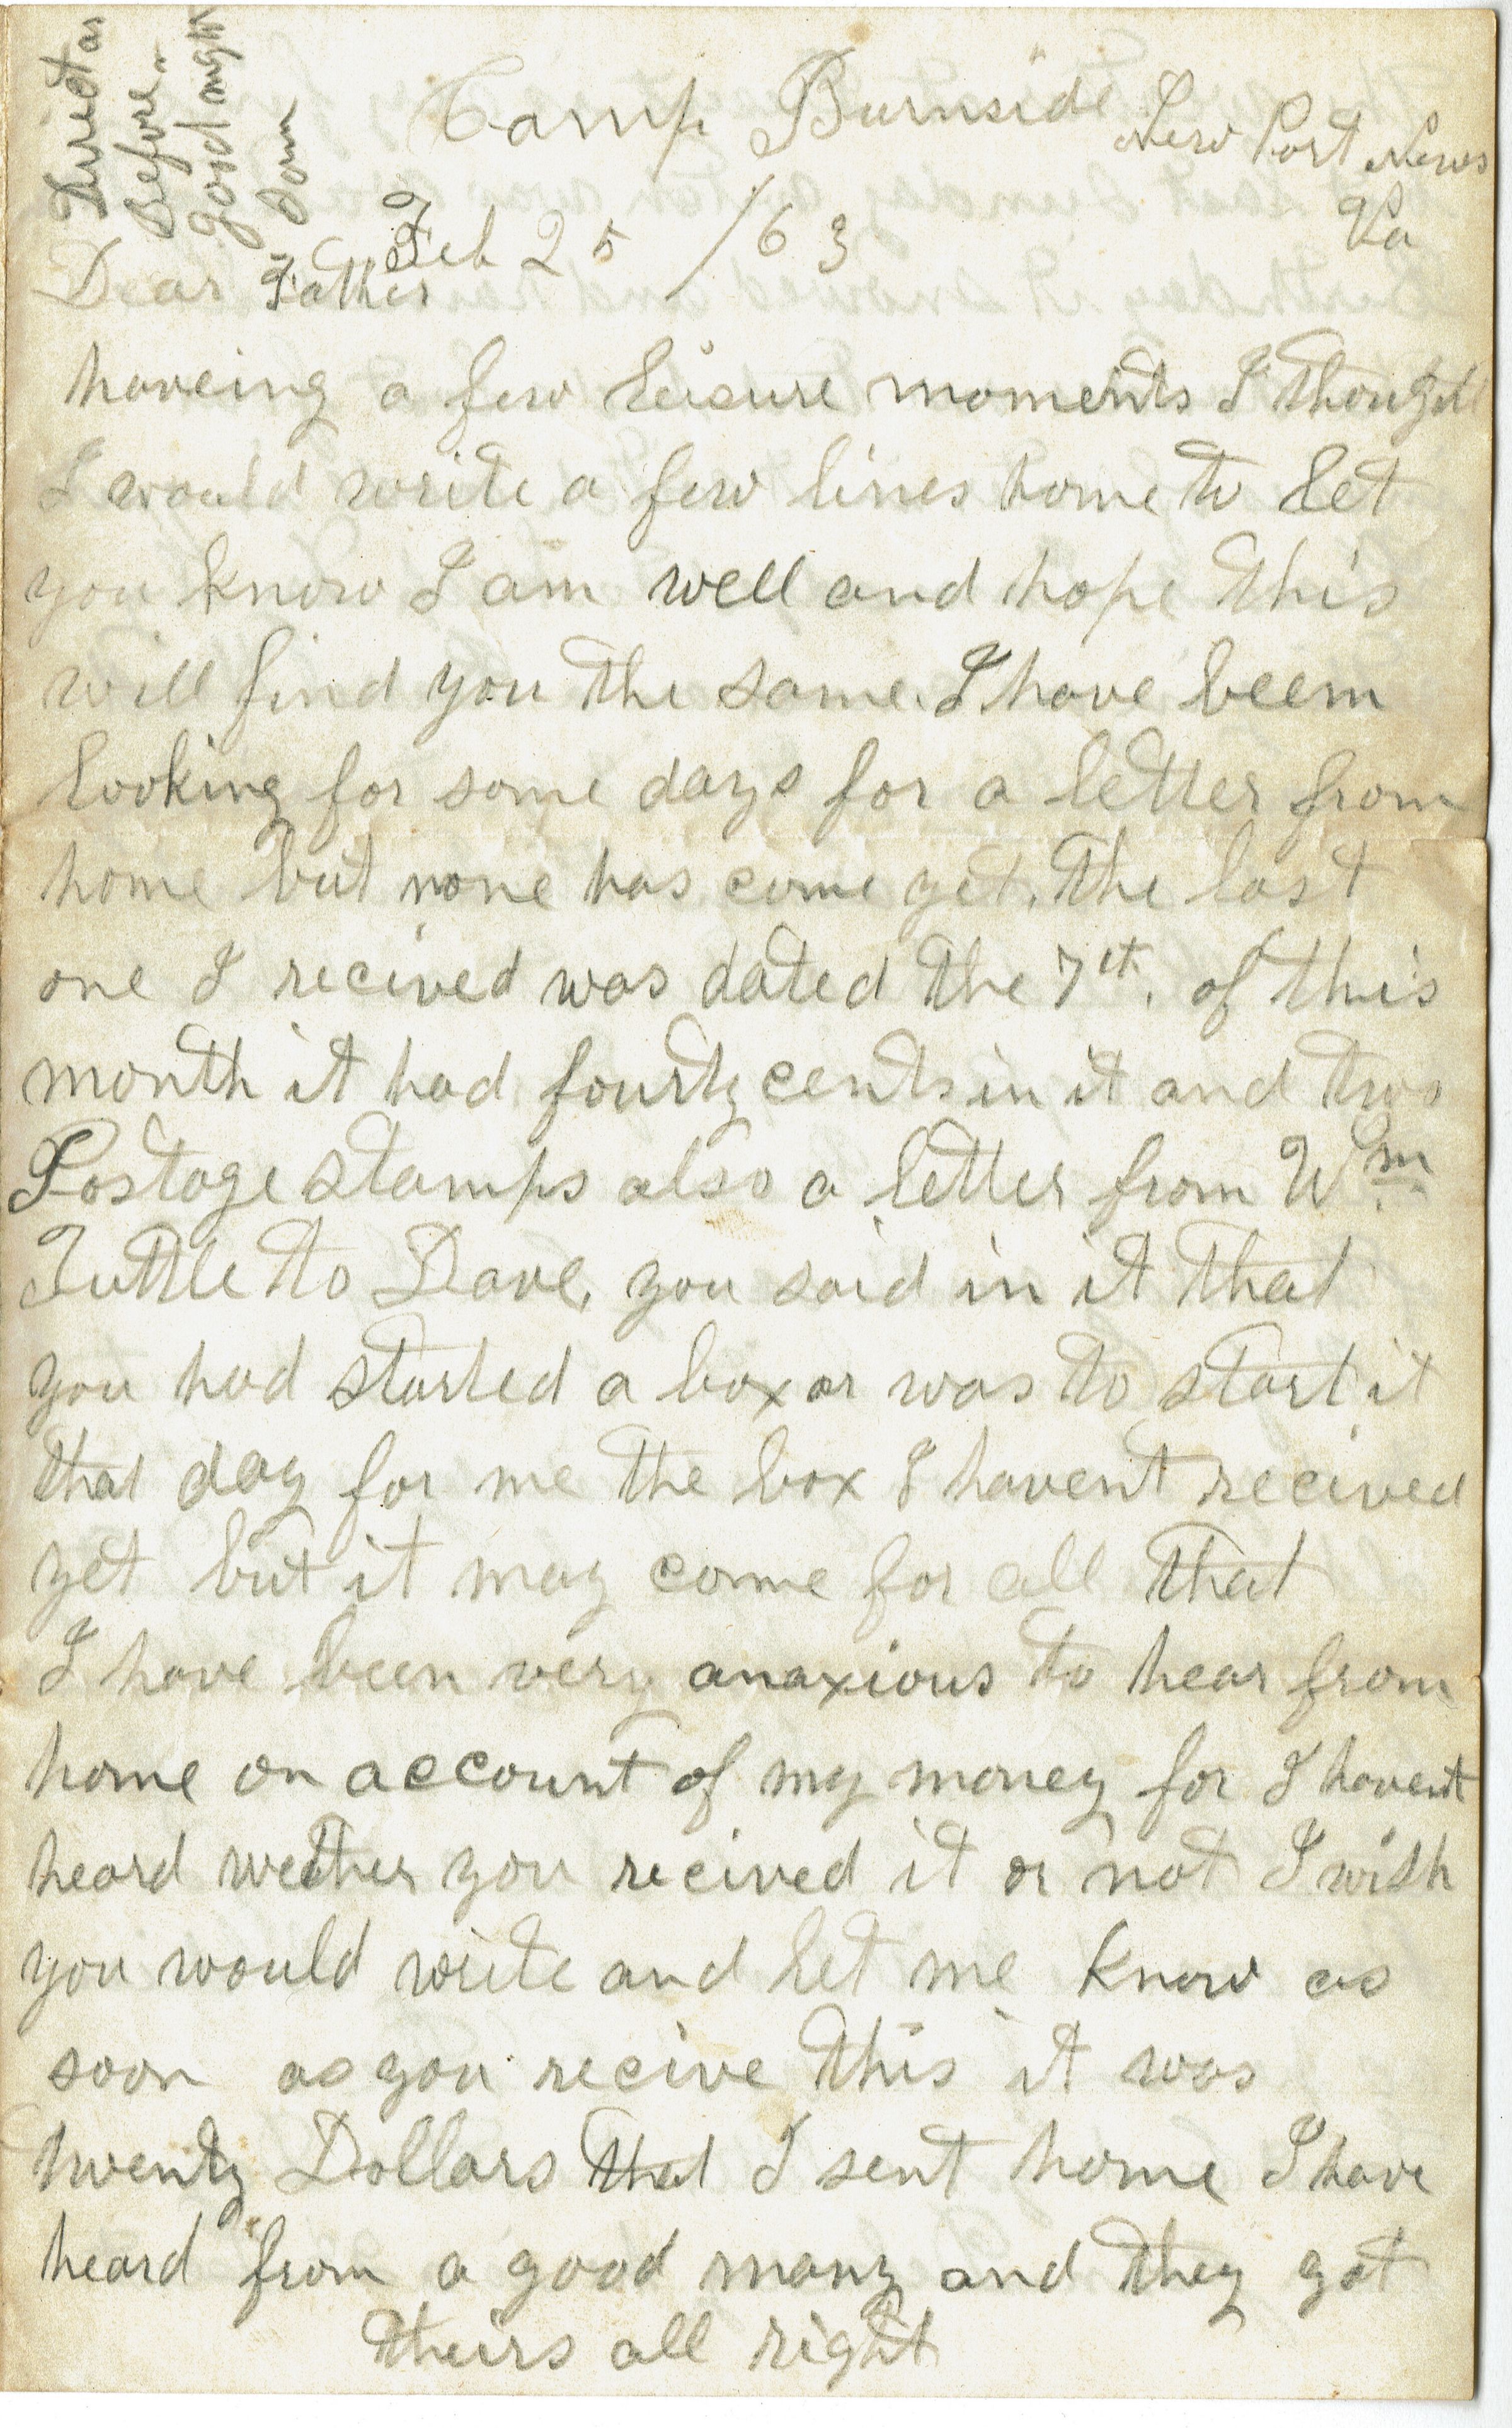 Direct as
Before
good night
Dom
Camp Burnside New Port News
Va
Feb 25 /63
Dear Father
haveing a few leisure moments I thought
I would write a few lines home to let
you know I am well and hope this
will find you the same. I have beem
looking for some days for a letter from
home but none has come yet. The last
one I recived was dated the 7th. of this
month it had fourty cents in it and two
Postage stamps also a letter from Wm.
Tuttle to Dave, you said in it that
you had started a box or was to start it
that day for me the box I havent recived
yet but it may come for all that
I have been very anaxious to hear from
home on account of my money for I havent
heard wether you recived it or not I wish
you would write and let me know as
soon as you recive this it was
twenty Dollars that I sent home I have
heard from a good many and they got
theirs all right